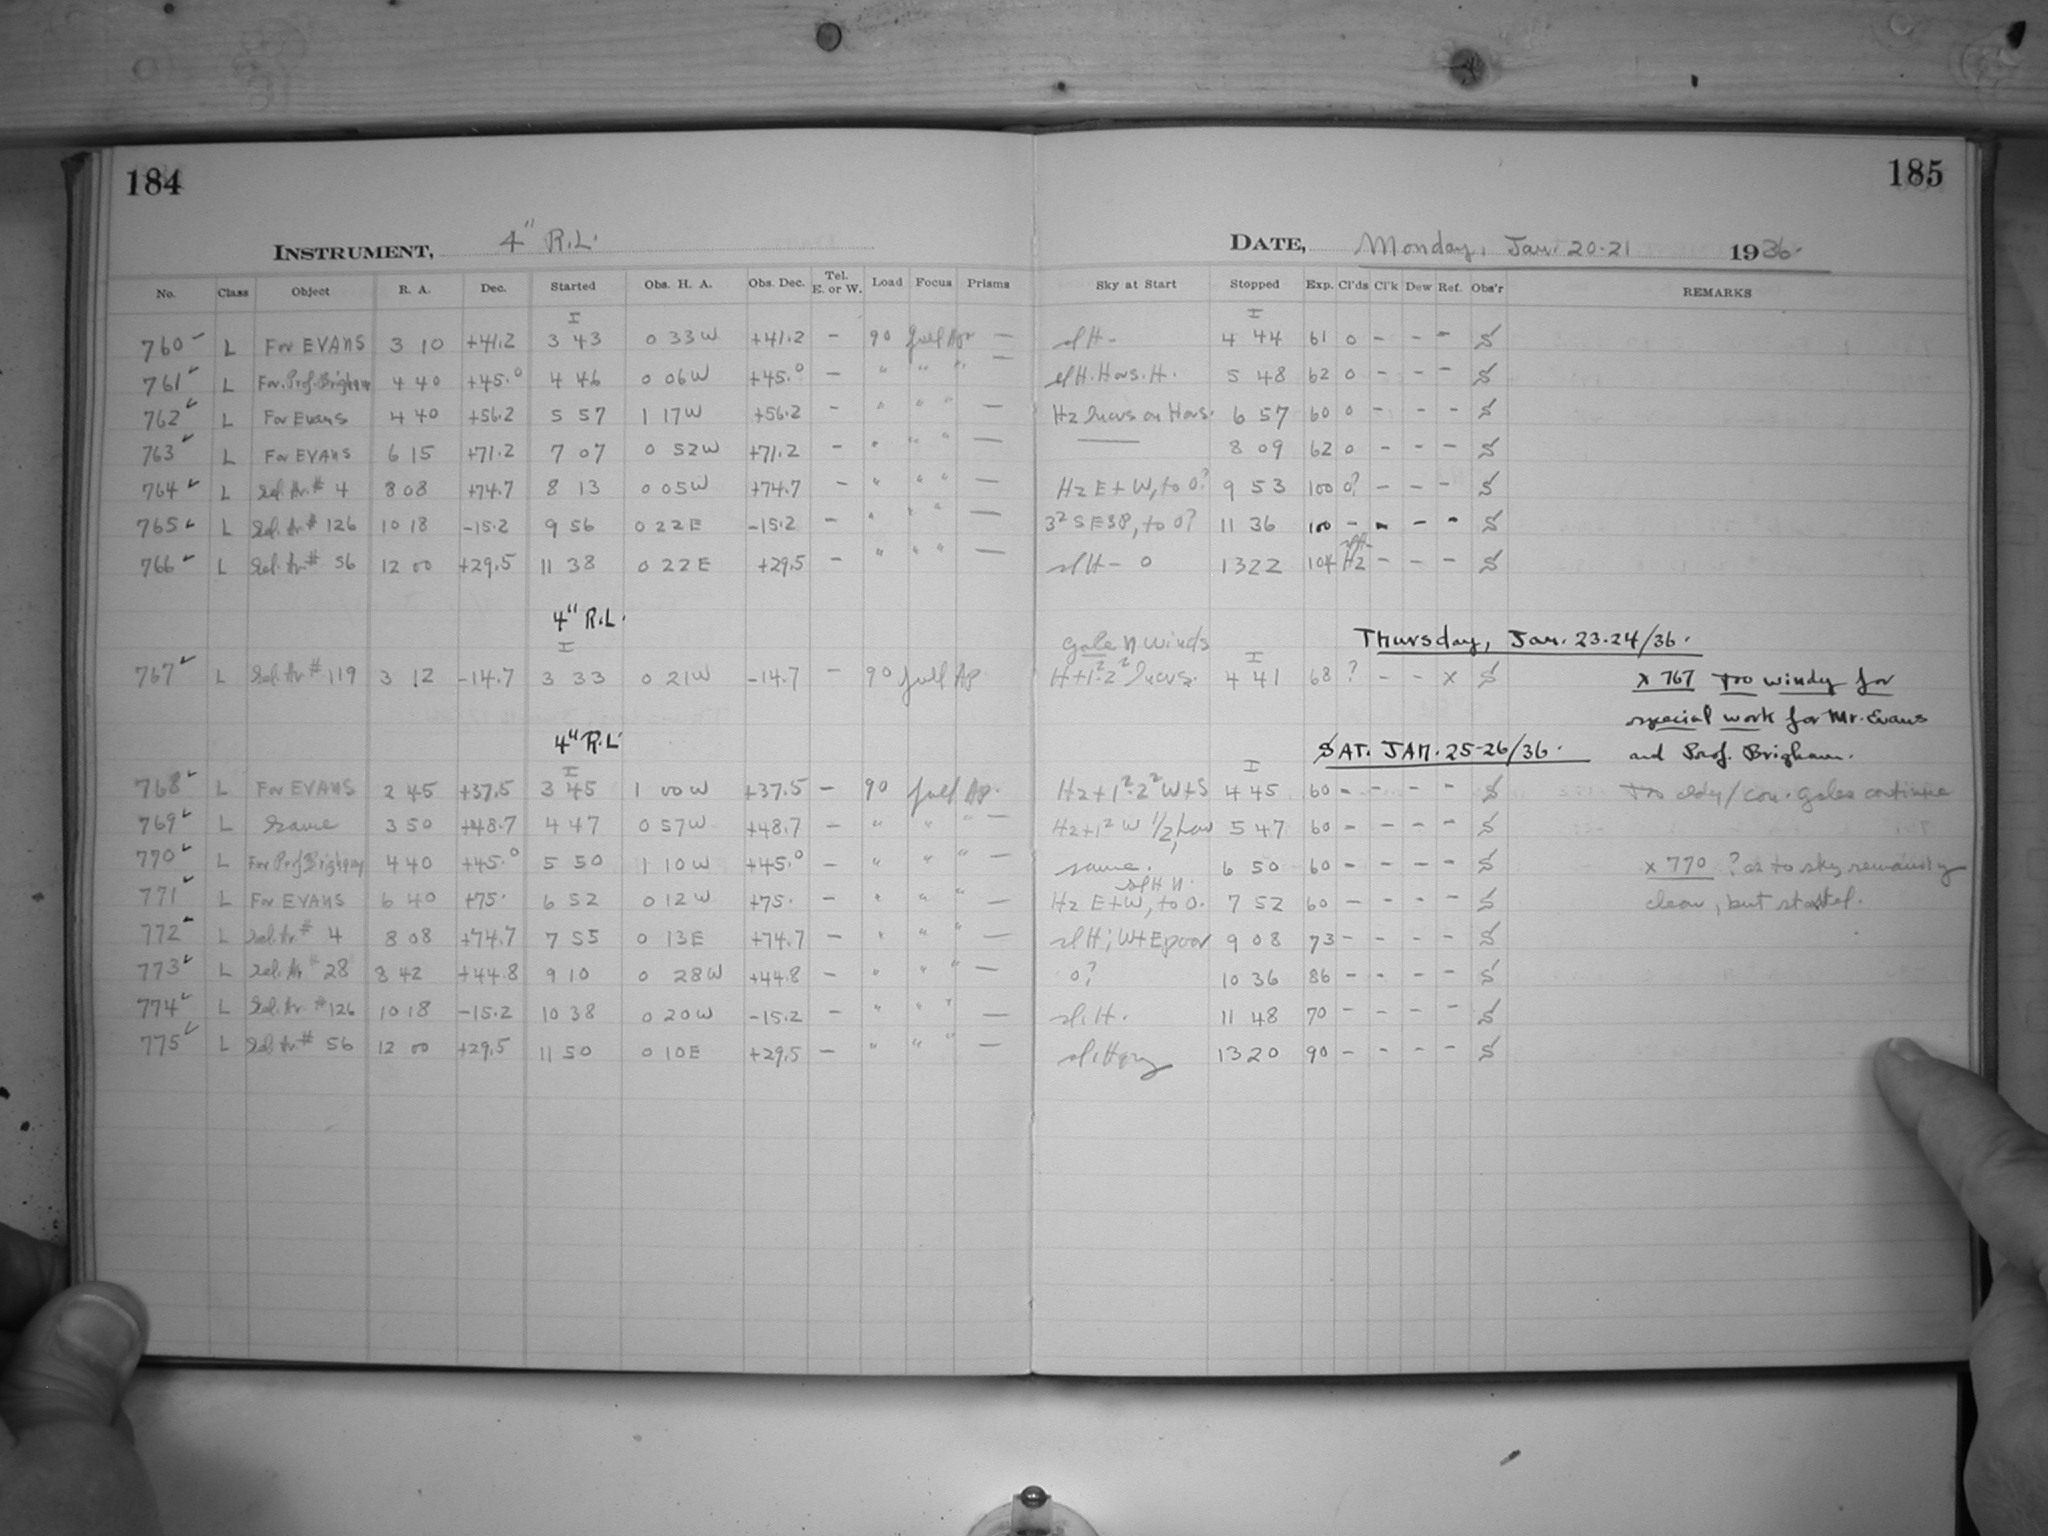 184
185
INSTRUMENT, 4" R.L.
DATE, Monday, Jan. 20-21 1936.
No. Class Object R. A. Dec. Started Obs. H. A. Obs. Dec. Tel. E. or W. Load Focus Prisms Sky at Start Stopped Exp. Cl'ds Cl'k Dew Ref. Obs'r REMARKS
I I
760 L For EVANS 3 10 +41.2 3 43 0 33W +41.2 - 90 full Apr — sl H - 4 44 61 0 - - - S
761 L For Prof. Brigham 4 40 +45.0 4 46 0 06W +45.0 - " " " — sl H. Hors. H. 5 48 62 0 - - - S
762 L For Evans 4 40 +56.2 5 57 1 17W +56.2 - " " " — Hz incrs on Hors. 6 57 60 0 - - - S
763 L For EVANS 6 15 +71.2 7 07 0 52W +71.2 - " " " — — 8 09 62 0 - - - S
764 L Sel. Ar. # 4 8 08 +74.7 8 13 0 05W +74.7 - " " " — Hz E + W, to 0? 9 53 100 0? - - - S
765 L Sel. Ar # 126 10 18 -15.2 9 56 0 22E -15.2 - " " " — 3² S E SP, to 0? 11 36 100 - - - - S
766 L Sel. Ar # 56 12 00 +29.5 11 38 0 22E +29.5 - " " " — sl H - 0 13 22 104 Hz - - - S
4" R.L.
Thursday, Jan. 23-24/36.
I gale N winds I
767 L Sel. Ar # 119 3 12 -14.7 3 33 0 21W -14.7 - 90 full Ap H+1²-2² Incrs. 4 41 68 ? - - x S x 767 Too windy for
special work for Mr. Evans
and Prof. Brigham.
4" R.L.
SAT. JAN. 25-26/36.
I I
768 L For EVANS 2 45 +37.5 3 45 1 00W +37.5 - 90 full Ap. Hz+1²-2² W+S 4 45 60 - - - - S Too cldy/con. gales continue
769 L Same 3 50 +48.7 4 47 0 57W +48.7 - " " " — Hz+1² W 1/2, low 5 47 60 - - - - S
770 L For Prof Brigham 4 40 +45.0 5 50 1 10W +45.0 - " " " — same. 6 50 60 - - - - S x 770 ? as to sky remaining
clear, but started.
771 L For EVANS 6 40 +75. 6 52 0 12W +75. - " " " Hz E+W, to 0. sl H N. 7 52 60 - - - - S
772 L Sel. Ar # 4 8 08 +74.7 7 55 0 13E +74.7 - " " " — sl H; W+E poor 9 08 73 - - - - S
773 L Sel. Ar # 28 8 42 +44.8 9 10 0 28W +44.8 - " " " — 0? 10 36 86 - - - - S
774 L Sel. Ar. # 126 10 18 -15.2 10 38 0 20W -15.2 - " " " — sl. H. 11 48 70 - - - - S
775 L Sel. Ar. # 56 12 00 +29.5 11 50 0 10E +29.5 - " " " — sl. Hazy 13 20 90 - - - - S